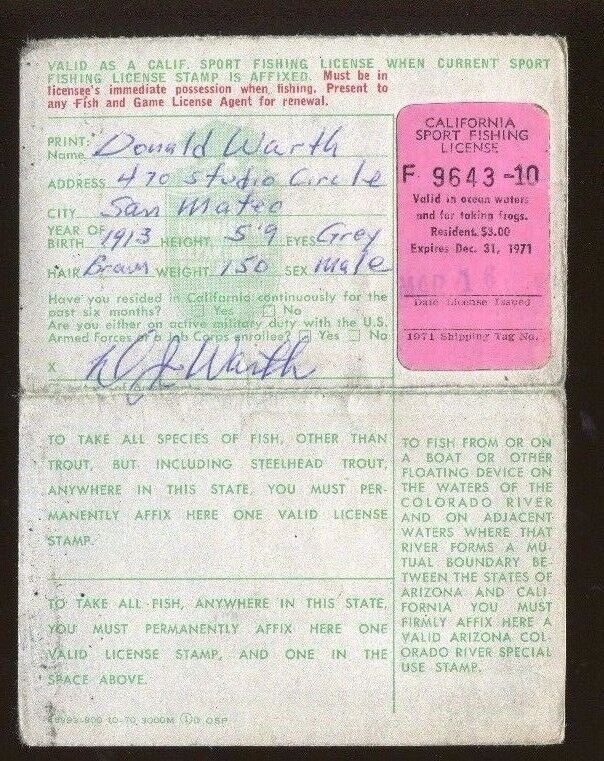 VALID AS A CALIF. SPORT FISHING LICENSE WHEN CURRENT SPORT
FISHING LICENSE STAMP IS AFFIXED. Must be in
licensee's immediate possession when fishing. Present to
any Fish and Game License Agent for renewal.
PRINT:
Name Donald Warth
ADDRESS 470 Studio Circle
CITY San Mateo
YEAR OF
BIRTH 1913 HEIGHT 5'9 EYES Grey
HAIR Brown WEIGHT 150 SEX Male
Have you resided in California continuously for the
past six months? Yes No
Are you either on active military duty with the U.S.
Armed forces or a Job Corps enrollee? Yes No
X Warth
CALIFORNIA
SPORT FISHING
LICENSE
F 9643-10
Valid in ocean waters
and for taking frogs.
Resident. $3.00
Expires Dec. 31, 1971
Date License Issued
1971 Shipping Tag No.
TO TAKE ALL SPECIES OF FISH, OTHER THAN
TROUT, BUT INCLUDING STEELHEAD TROUT,
ANYWHERE IN THIS STATE, YOU MUST PER-
MANENTLY AFFIX HERE ONE VALID LICENSE
STAMP.
TO TAKE ALL FISH, ANYWHERE IN THIS STATE,
YOU MUST PERMANENTLY AFFIX HERE ONE
VALID LICENSE STAMP, AND ONE IN THE
SPACE ABOVE.
TO FISH FROM OR ON
A BOAT OR OTHER
FLOATING DEVICE ON
THE WATERS OF THE
COLORADO RIVER
AND ON ADJACENT
WATERS WHERE THAT
RIVER FORMS A MU-
TUAL BOUNDARY BE-
TWEEN THE STATES OF
ARIZONA AND CALI-
FORNIA YOU MUST
FIRMLY AFFIX HERE A
VALID ARIZONA COL-
ORADO RIVER SPECIAL
USE STAMP.
10-70 3000M OSP